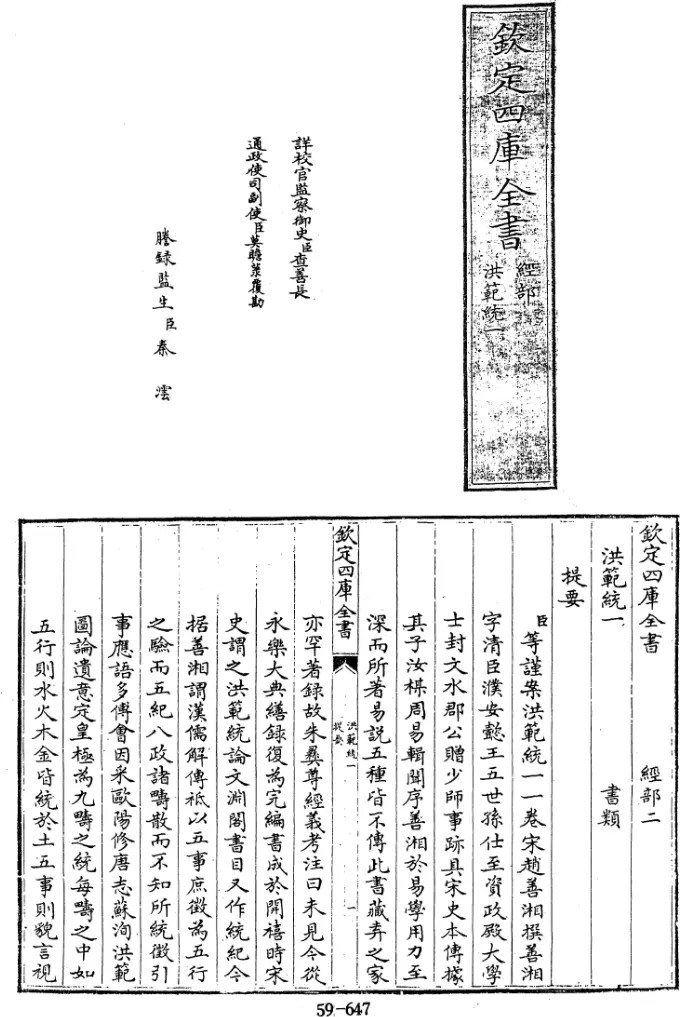 欽定四庫全書
經部
洪範統一
詳校官監察御史臣查善長
通政使司副使臣莫瞻菉覆勘
謄錄監生臣秦澐
欽定四庫全書 經部二
洪範統一 書類
提要
臣等謹案洪範統一一卷宋趙善湘撰善湘
字清臣濮安懿王五世孫仕至資政殿大學
士封文水郡公贈少師事跡具宋史本傳據
其子汝楳周易輯聞序善湘於易學用力至
深而所著易說五種皆不傳此書藏弆之家
欽定四庫全書
洪範統一
提要
一
亦罕著録故朱彞尊經義考注曰未見今從
永樂大典繕録復為完編書成於開禧時宋
史謂之洪範統論文淵閣書目又作統紀今
据善湘謂漢儒解傳祗以五事庶徵為五行
之驗而五紀八政諸疇散而不知所統徵引
事應語多傅會因采歐陽修唐志蘇洵洪範
圖論遺意定皇極為九疇之統每疇之中如
五行則水火木金皆統於土五事則貌言視
59-647